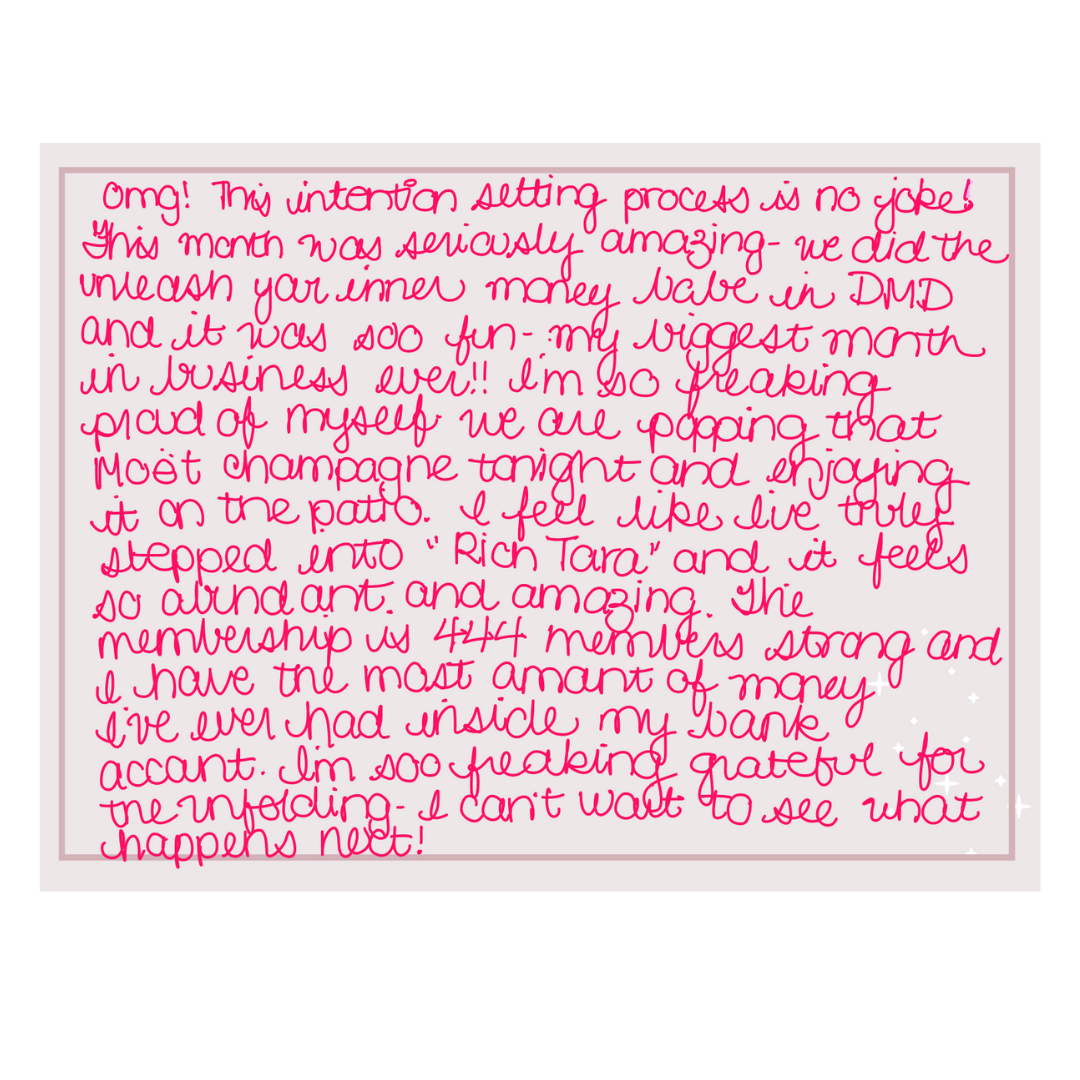 Omg! This intention setting process is no joke!
This month was seriously amazing- we did the
unleash your inner money babe in DMD
and it was soo fun- my biggest month
in business ever!! I'm so freaking
proud of myself we are popping that
Moët champagne tonight and enjoying
it on the patio. I feel like I've truly
stepped into "Rich Tara" and it feels
so abundant. and amazing. The
membership is 444 members strong and
I have the most amount of money
I've ever had inside my bank
account. I'm soo freaking grateful for
the unfolding- I can't wait to see what
happens next!